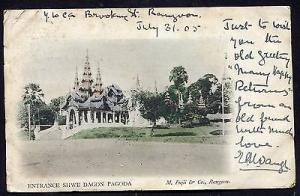 Y.W.C.A Brooking St. Rangoon.
July 31. 05
Just to wish
you the
old greeting
"Many happy
Returns"
from an
old friend
with much
love
ENTRANCE SHWE DAGON PAGODA
M. Fujii & Co., Rangoon.